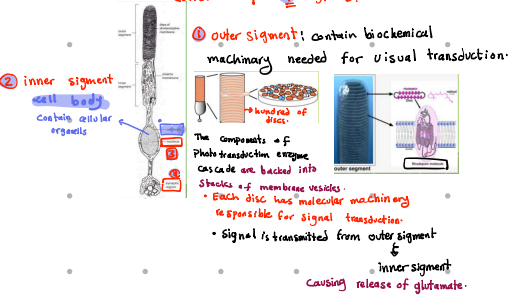 ① outer sigment: contain biochemical
machinary needed for visual transduction.
② inner sigment
cell body
contain cellular
organells
hundred of
discs.
outer segment
Rhodopsin molecule
The components of
phototransduction enzyme
cascade are backed into
stacks of membrane vesicles.
• Each disc has molecular machinary
responsible for signal transduction.
• Signal is transmitted from outer sigment
inner sigment
causing release of glutamate.